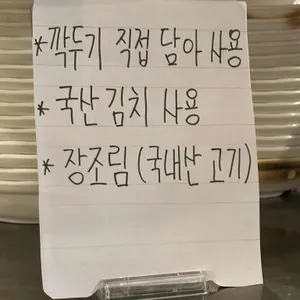 *깍두기 직접 담아 사용
*국산김치 사용
*장조림(국내산 고기)